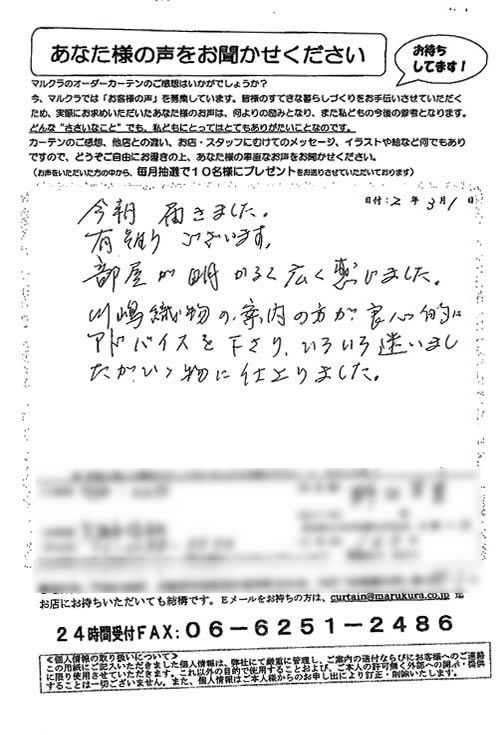 あなた様の声をお聞かせください
お待ち
してます!
マルクラのオーダーカーテンのご感想はいかがでしょうか?
今、マルクラでは「お客様の声」を募集しています。皆様のすてきな暮らしづくりをお手伝いさせていただく
ため、実際にお求めいただいたあなた様のお声は、何よりの励みとなり、また私どもの今後の参考となります。
どんな“ささいなこと”でも、私どもにとってはとてもありがたいことなのです。
カーテンのご感想、他店との違い、お店・スタッフにむけてのメッセージ、イラストや絵など何でもあり
ですので、どうぞご自由にお書きの上、あなた様の率直なお声をお聞かせください。
(お声をいただいた方の中から、毎月抽選で10名様にプレゼントをお送りさせていただいております)
日付:2 年 3月1日
今朝 届きました。
有難う ございます。
部屋が明かるく広く感じました。
川嶋織物の案内の方が良心的に
アドバイスを下さり、いろいろ迷いまし
たがいゝ物に仕上りました。
お店にお持ちいただいても結構です。Eメールをお持ちの方は、curtain@marukura.co.jp
24時間受付FAX:06-6251-2486
≪個人情報の取り扱いについて≫
この用紙にご記入いただきました個人情報は、弊社にて厳重に管理し、ご案内の送付ならびにお客様へのご連絡
に限り使用させていただきます。これ以外の目的で使用することおよび、ご本人の許可無く外部への開示・提供
することは一切ございません。また、個人情報はご本人様からのお申し出により訂正・削除いたします。